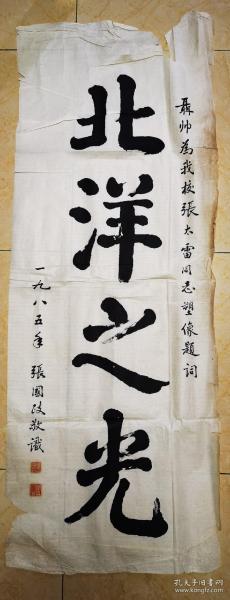 聂帅為我校張太雷同志塑像題詞
北洋之光
一九八五年 張國
敬識
孔夫子旧书网